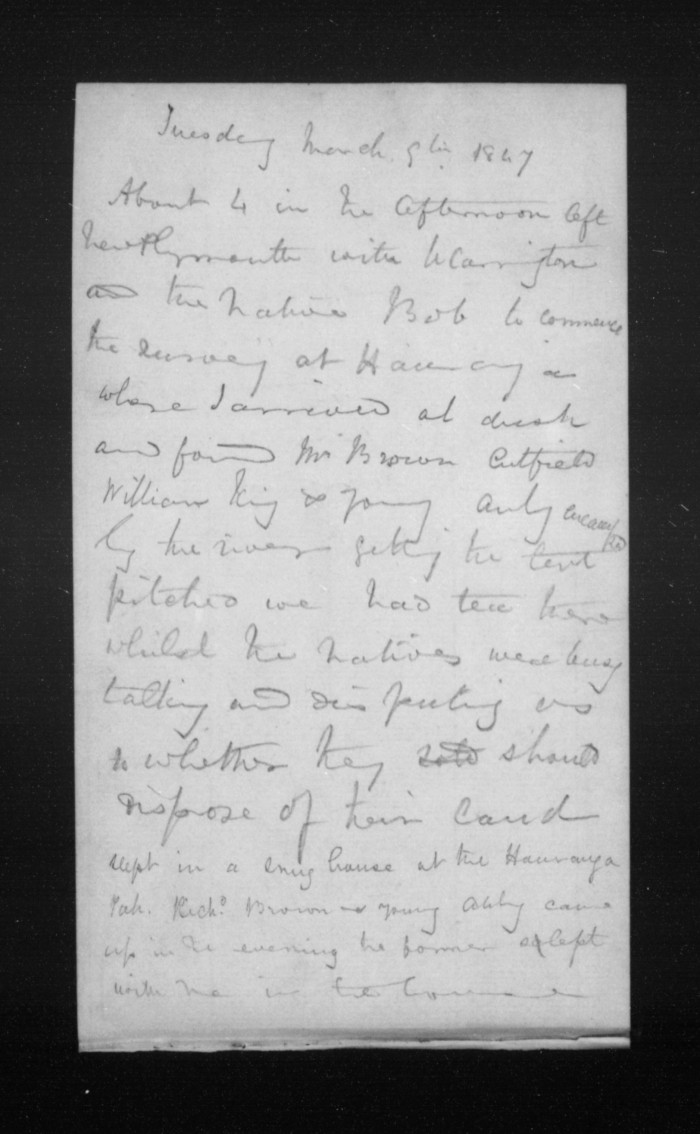 Tuesday March 9th 1847
About 4 in the afternoon left
New Plymouth with WCarrington
and the native Bob to commence
the survey at Hauranga
where I arrived at dusk
and found Mr Brown Cutfield
William King & young Auby encamped
by the river getting the tent
pitched we had tea here
whilst the natives were busy
talking and disputing as
to whether they sold should
dispose of their land
slept in a snug house at the Hauranga
Pah. Richd Brown & young Auby came
up in the evening the former slept
with me in the house